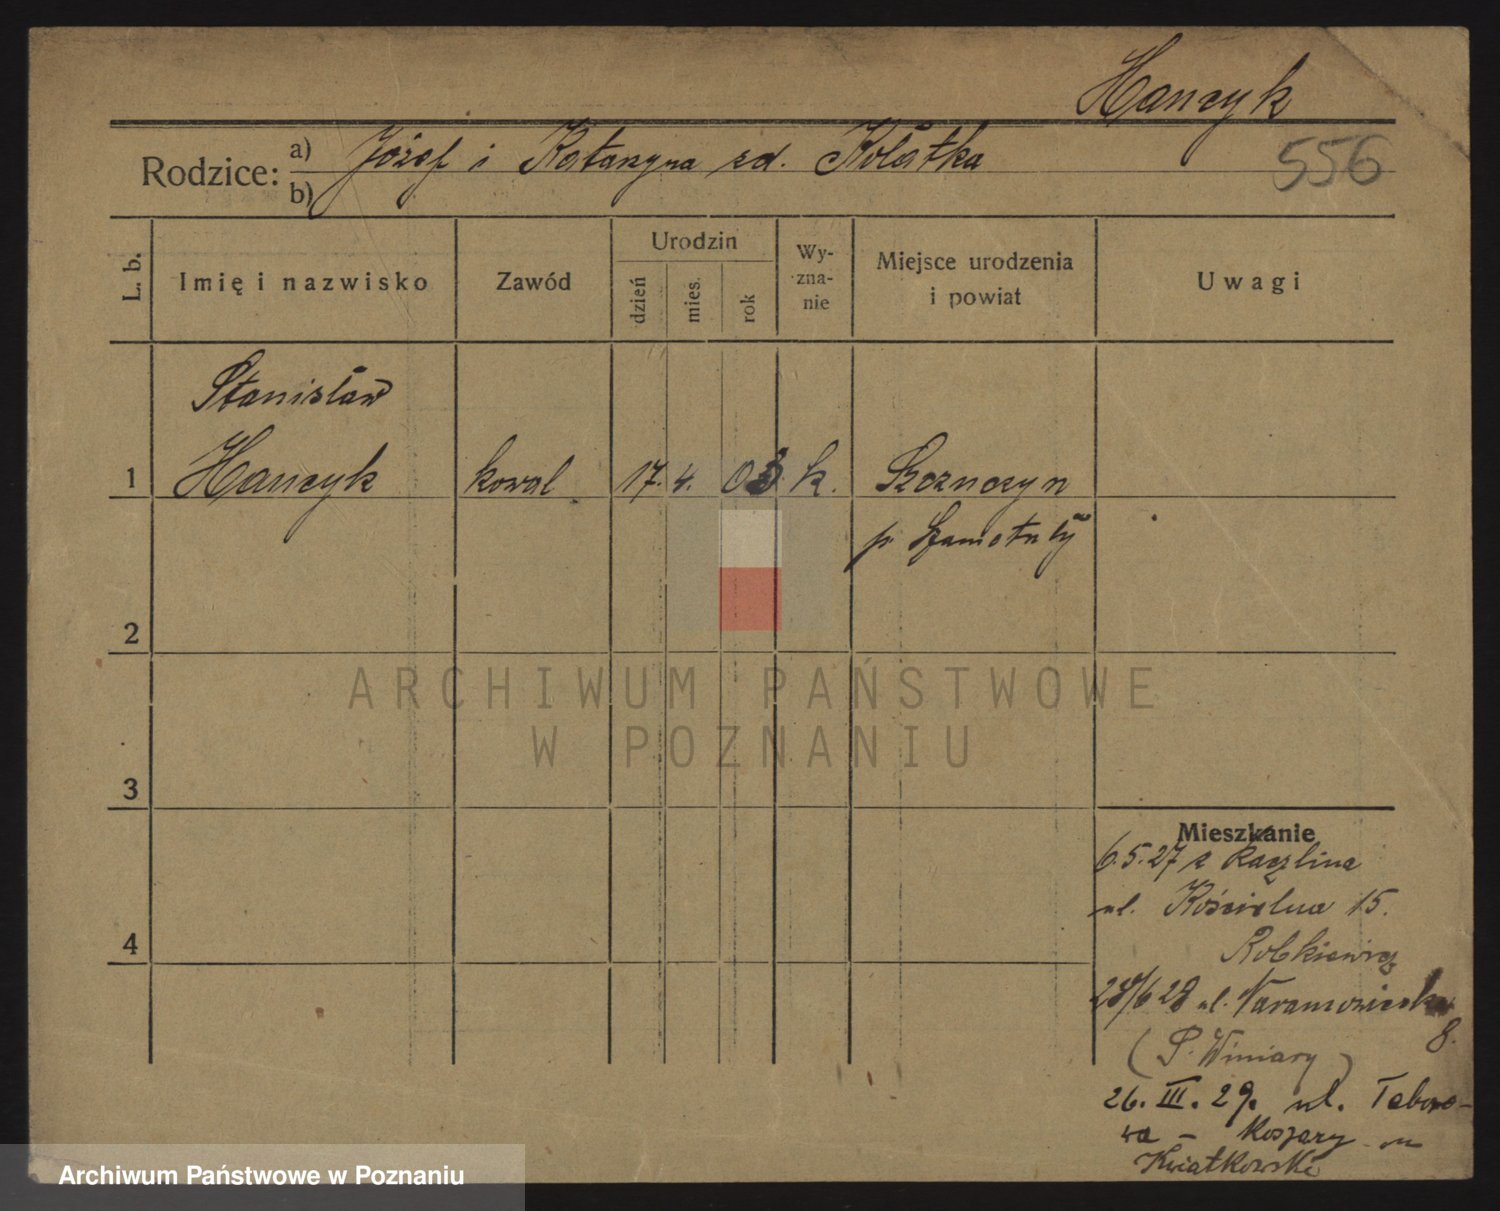 Hanczyk
556
Rodzice: a) Józef i Katarzyna zd. Kolatka
b)
L. b. Imię i nazwisko Zawód Urodzin dzień mies. rok Wy-zna-nie Miejsce urodzenia i powiat Uwagi
Stanisław
1 Hanczyk kowal 17. 4. 03 k. Szczuczyn
p. Szamotuły
2
ARCHIWUM PAŃSTWOWE
W POZNANIU
3
Mieszkanie
6.5.27 z Kaźlina
ul. Kościelna 15.
4
28/6 28 ul. Naramowicka
8.
(P. Winiary)
26. III. 29. ul. Taboro-
wa - Koszary
Kwiatkowski
Archiwum Państwowe w Poznaniu